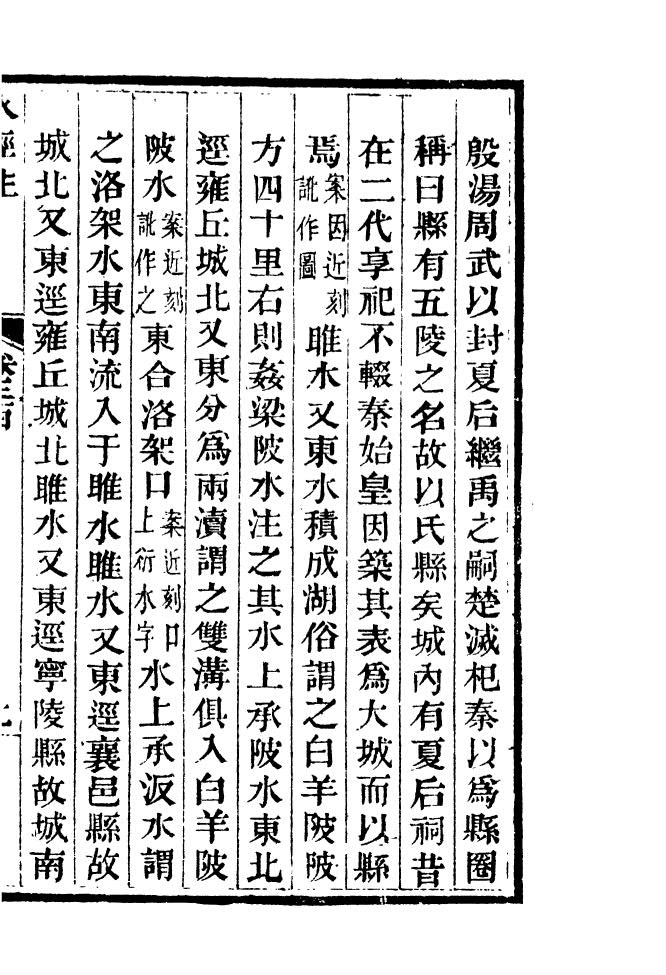 殷湯周武以封夏后繼禹之嗣楚滅杞秦以爲縣圈
稱曰縣有五陵之名故以氏縣矣城內有夏后祠昔
在二代享祀不輟秦始皇因築其表爲大城而以縣
焉案因近刻訛作圖睢水又東水積成湖俗謂之白羊陂陂
方四十里右則姦梁陂水注之其水上承陂水東北
逕雍丘城北又東分爲兩瀆謂之雙溝俱入白羊陂
陂水案近刻訛作之東合洛架口案近刻口上衍水字水上承汳水謂
之洛架水東南流入于睢水睢水又東逕襄邑縣故
城北又東逕雍丘城北睢水又東逕寧陵縣故城南
水經注